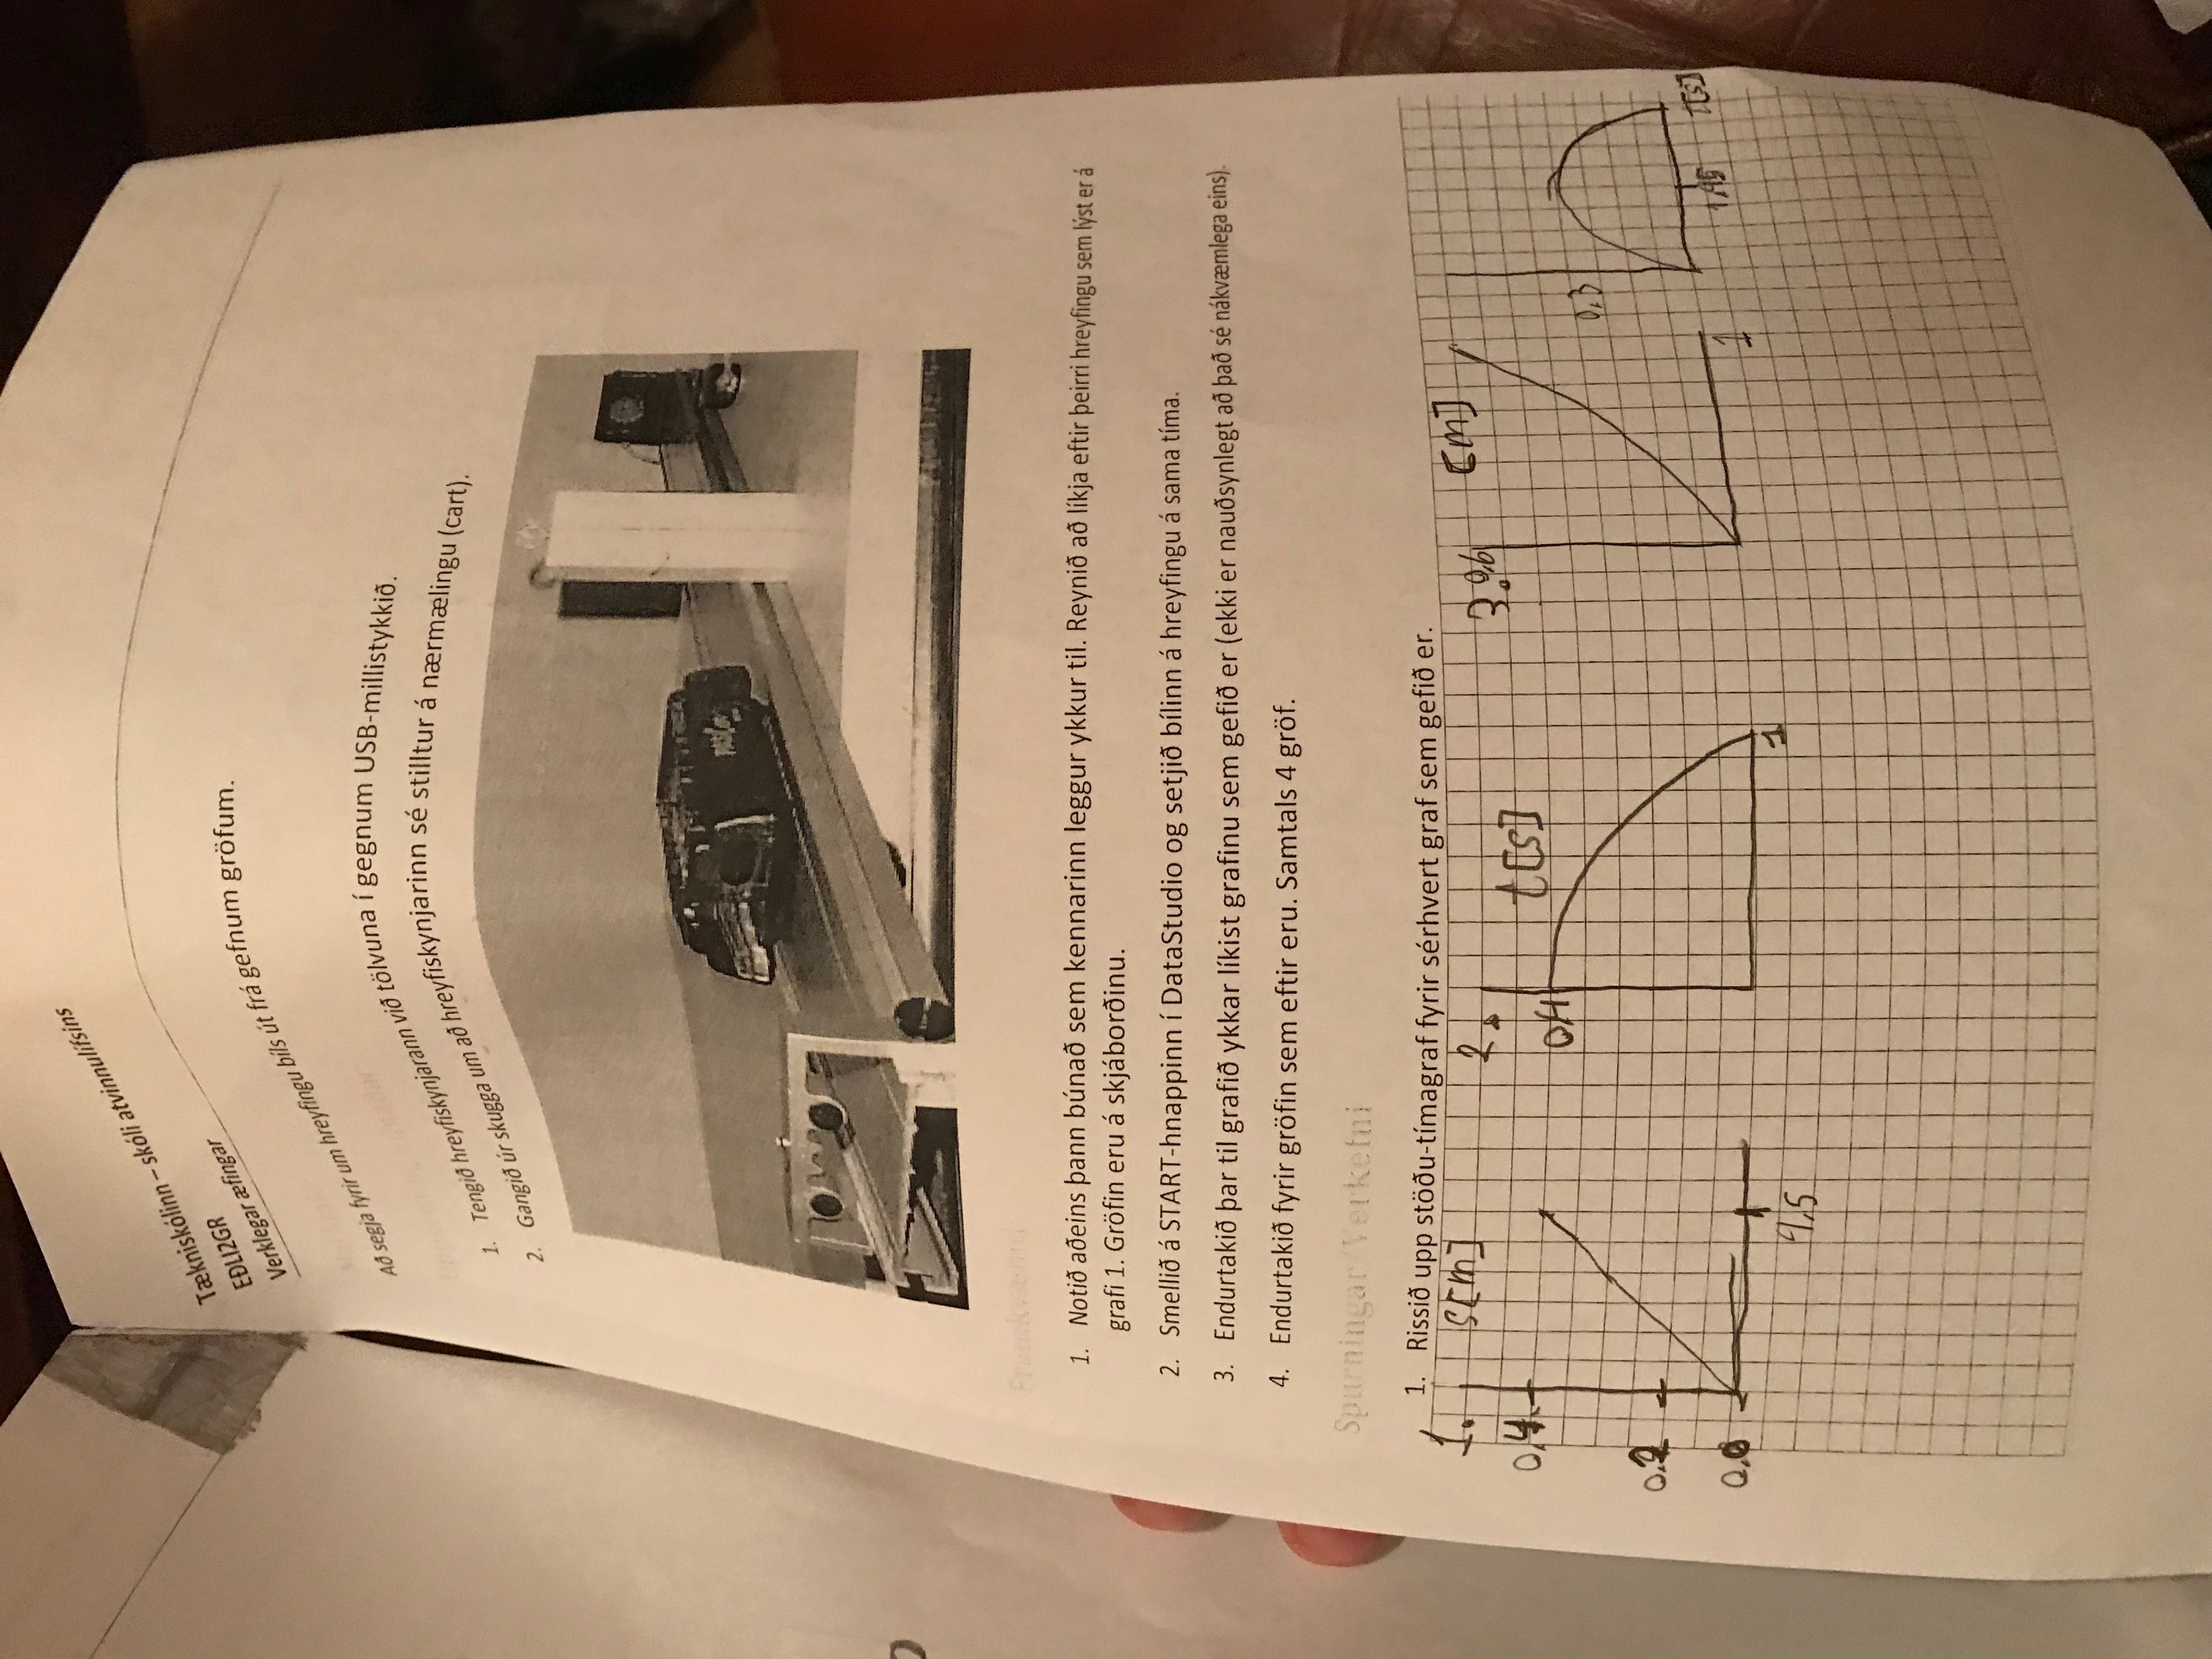 Tækniskólinn – skóli atvinnulífsins
EÐLI2GR
Verklegar æfingar
Að segja fyrir um hreyfingu bíls út frá gefnum gröfum.
1. Tengið hreyfiskynjarann við tölvuna í gegnum USB-millistykkið.
2. Gangið úr skugga um að hreyfiskynjarinn sé stilltur á nærmælingu (cart).
Framkvæmd:
1. Notið aðeins þann búnað sem kennarinn leggur ykkur til. Reynið að líkja eftir þeirri hreyfingu sem lýst er á
grafi 1. Gröfin eru á skjáborðinu.
2. Smellið á START-hnappinn í DataStudio og setjið bílinn á hreyfingu á sama tíma.
3. Endurtakið þar til grafið ykkar líkist grafinu sem gefið er (ekki er nauðsynlegt að það sé nákvæmlega eins).
4. Endurtakið fyrir gröfin sem eftir eru. Samtals 4 gröf.
Spurningar/Verkefni
1. Rissið upp stöðu-tímagraf fyrir sérhvert graf sem gefið er.
1. s[m]
0,4
0.2
0.0
2. t[s]
1
3. 0,6 [m]
1
0,3
t[s]